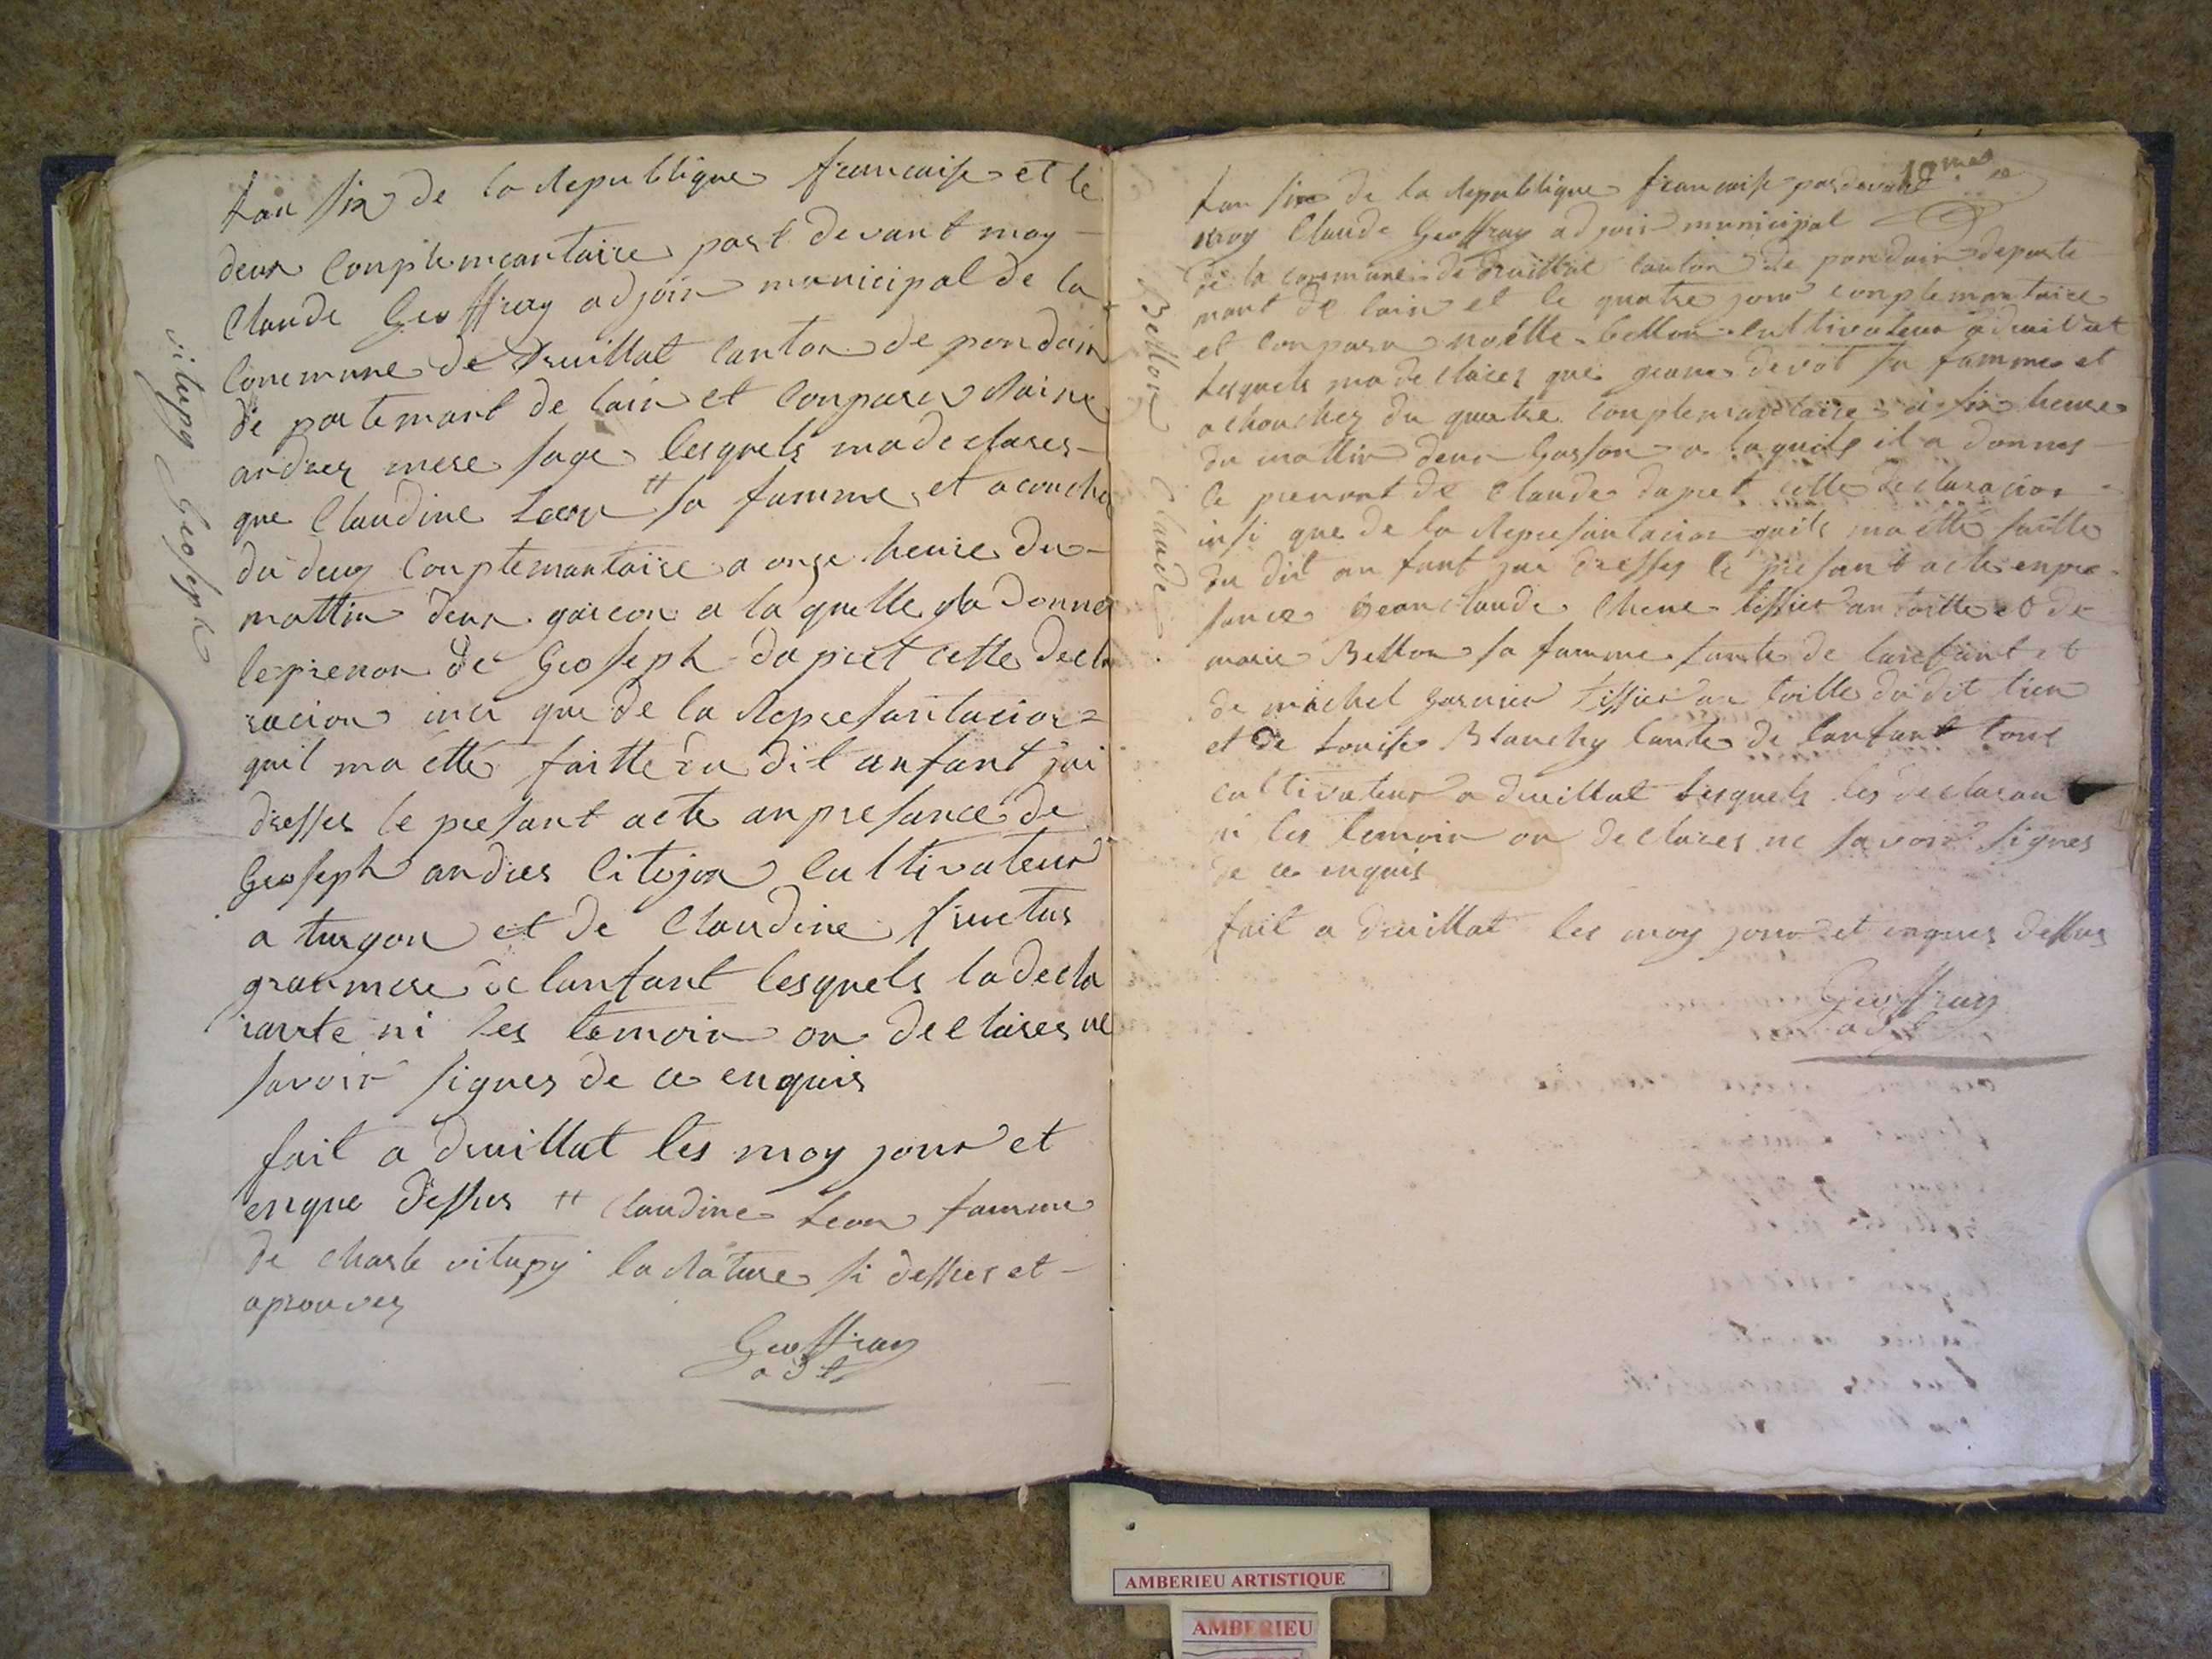 vitupy Geoseph
Lan six de la Republique francaise et le
deux Complemantaire part devant moy
Claude Geoffray adjoin municipal de la
Commune de Druillat Canton de pondain
de partemant de lain et Conparu
andrez mere sage lesquels ma declares
que Claudine Leon # sa famme et a couche
du deux Complemantaire a onze heure du
mattin deux garcon a la quelle a donner
le prenon de Geoseph dapret cette decla
racion inci que de la Represantacion
quil ma etté faitte du dit anfant jai
dresses le presant acte an presance de
Geoseph andres Citojon Cultivateur
a turgon et de Claudine fructus
granmere de lanfant lesquels la decla
rante ni les temoin on declares ne
savoir signes de ce enquis
fait a druillat les moy jour et
enque dessus # Claudine Leon famme
de Charle vitupy la Rature si dessus et
aprouvez
Geoffray
adt
10mes
Bellon Claude
Lan six de la Republique francaise par devant
moy Claude Geoffray adjoin municipal
de la commune de druillat canton de pondain departe
mant de lain et le quatre jour conplemantaire
et conparu noelle bellon cultivateur a druillat
lesquels ma declares que jeanne devot sa famme et
achouchez du quatre Complemantaire a six heure
du mattin deux Gasson a laquels il a donnes
le prenont de Claude dapret cette declaracion
insi que de la Represantacion quils ma etté faitte
du dit anfant jai dresses le presant acte enpre
sance Jean Claude Chene tissier an toille et de
marie Bellon sa famme tante de lanfant et
de michel garnier tissier an toille du dit lieu
et de Louise Blanchy tante de lanfant tous
cultivateur a druillat lesquels les declaran
ni les temoin on declares ne savoir signes
de ce enquis
fait a druillat les moy jour et enques dessus
Geoffray
adt
AMBERIEU ARTISTIQUE
AMBERIEU